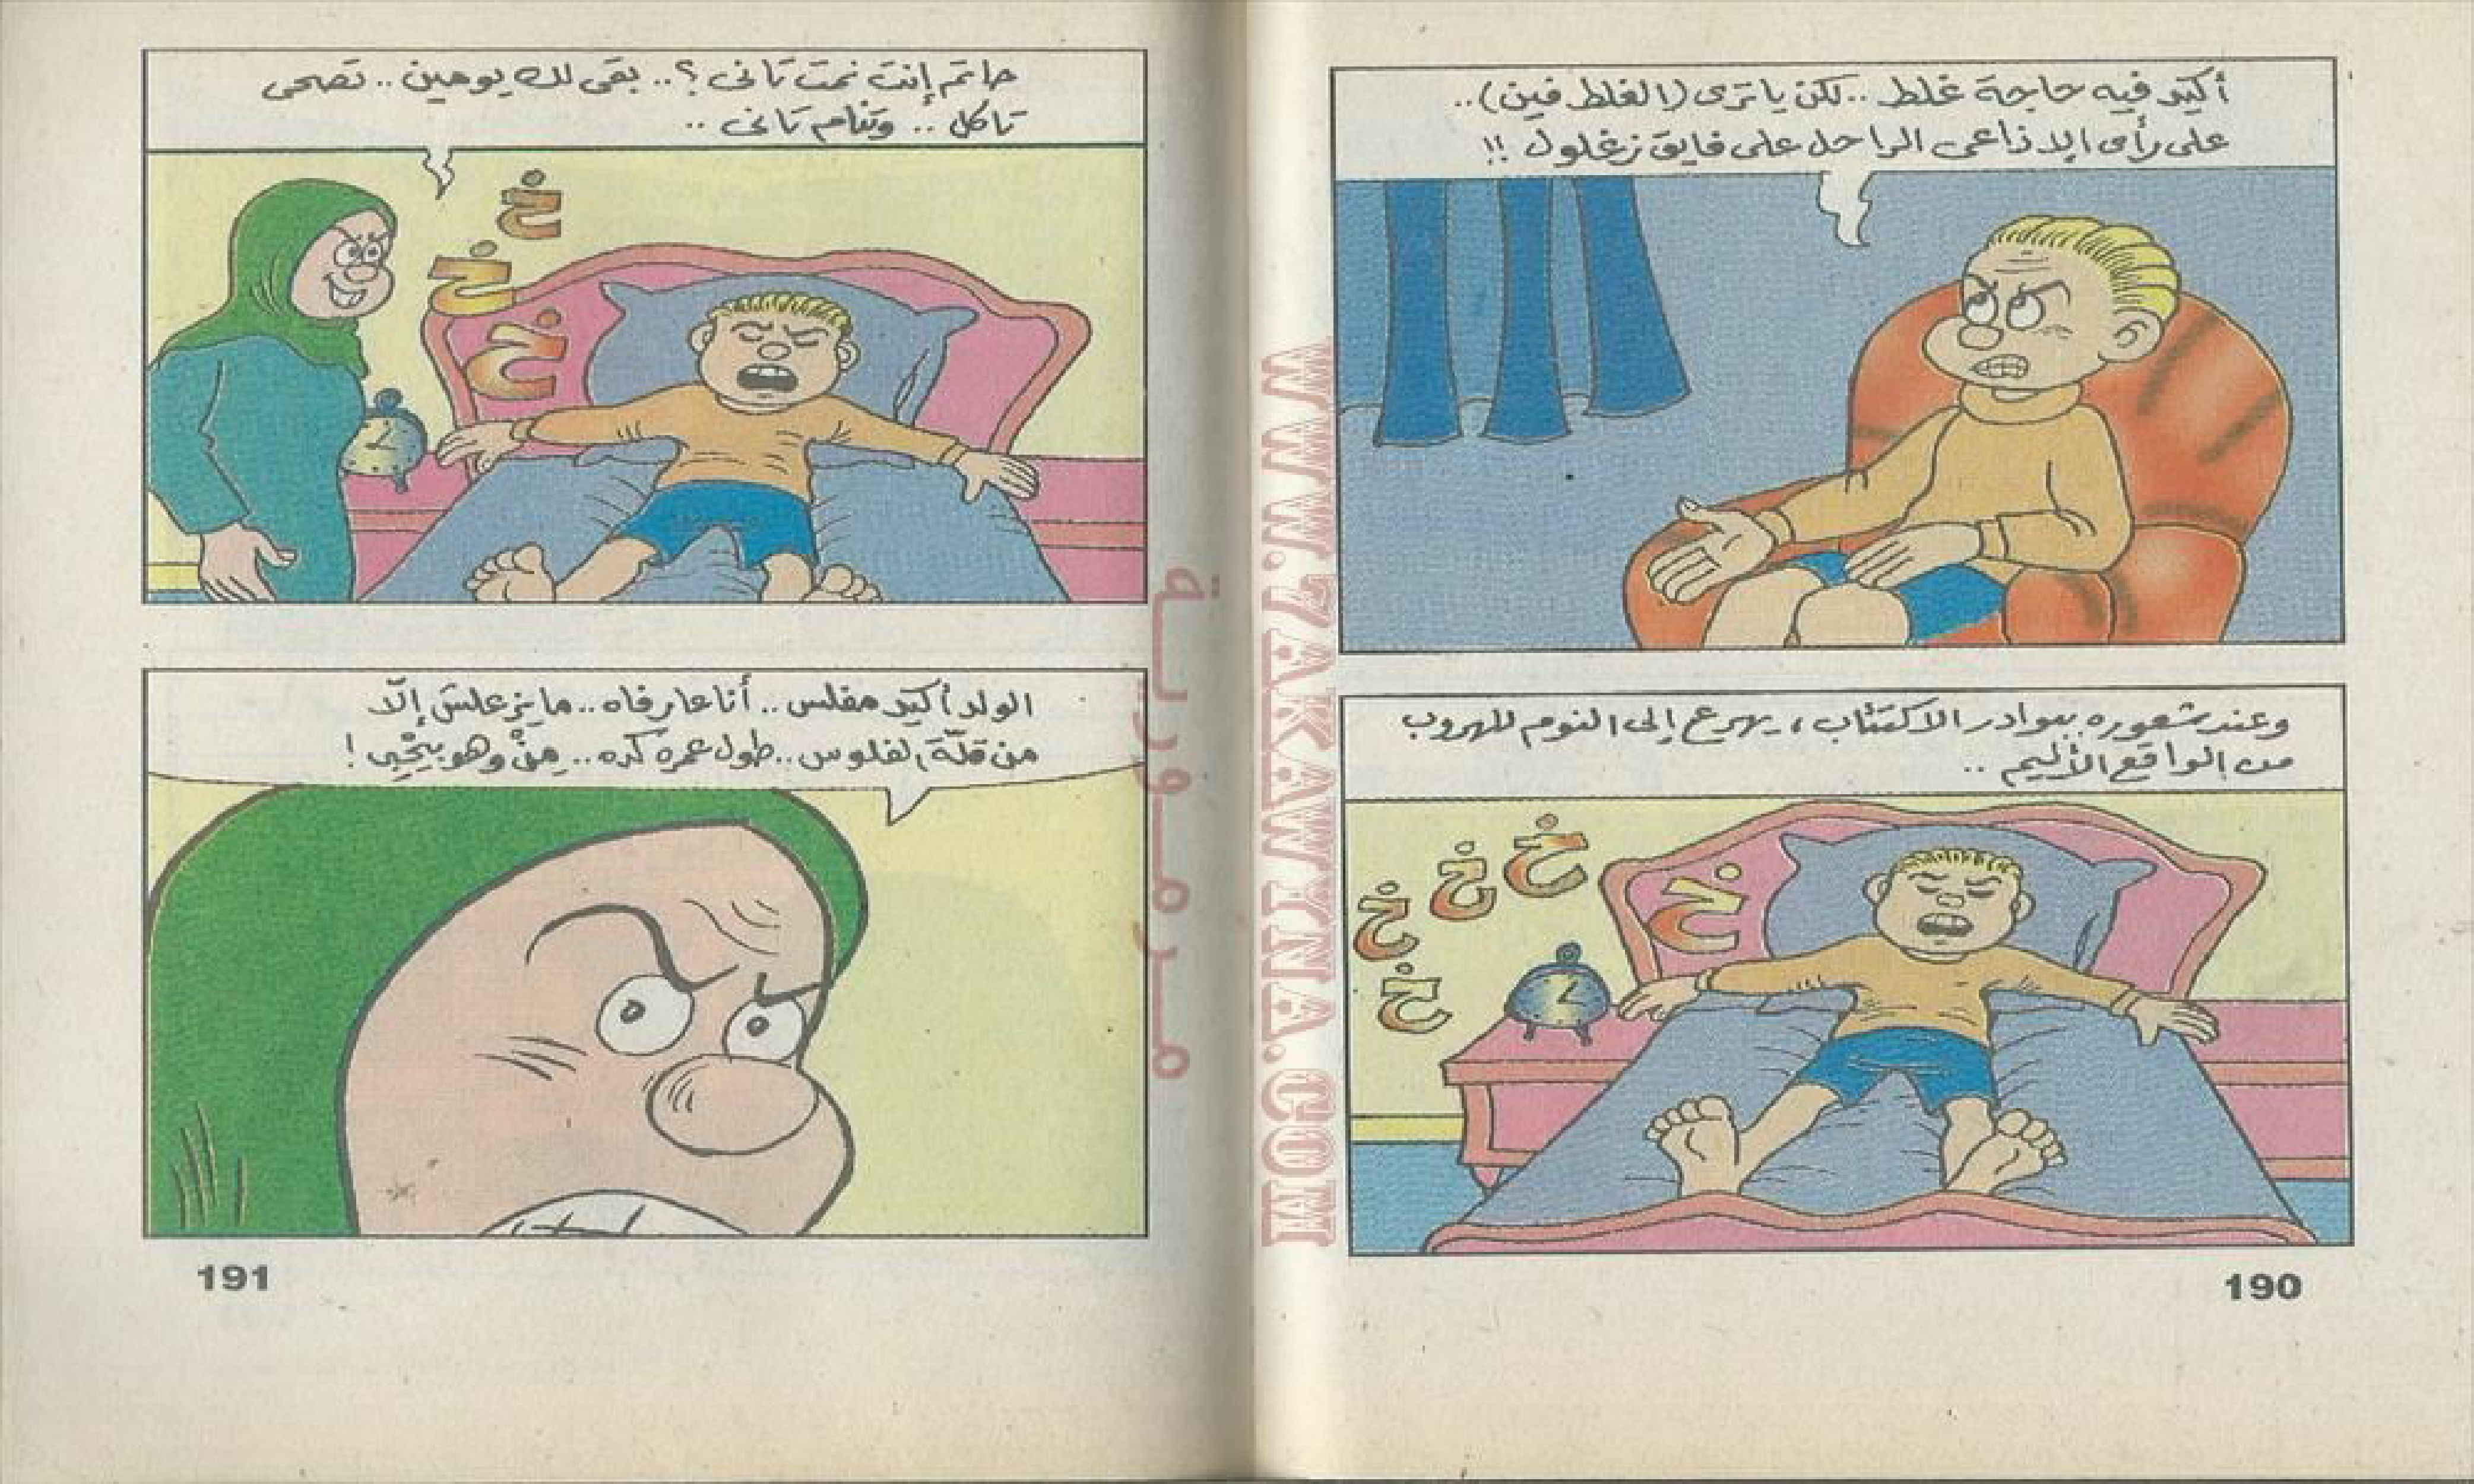 أكيد فيه حاجة غلط .. لكن ياترى (الغلط فين) ..
على رأى الإذاعى الراحل على فايق زغلول !!
وعند شعوره ببوادر الاكتئاب ، يهرع إلى النوم للهروب
من الواقع الأليم ..
خ
خ
خ
خ
خ
190
حاتم إنت نمت تانى ؟ .. بقى لك يومين .. تصحى
تاكل .. وتنام تانى ..
خ
خ
خ
الولد أكيد مفلس .. أنا عارفاه .. ما يزعلش إلّا
من قلّة الفلوس .. طول عمره كده .. مِنْ وهو بِيِحْبِى !
191
WWW.7AKAWINA.COM
مرمورية